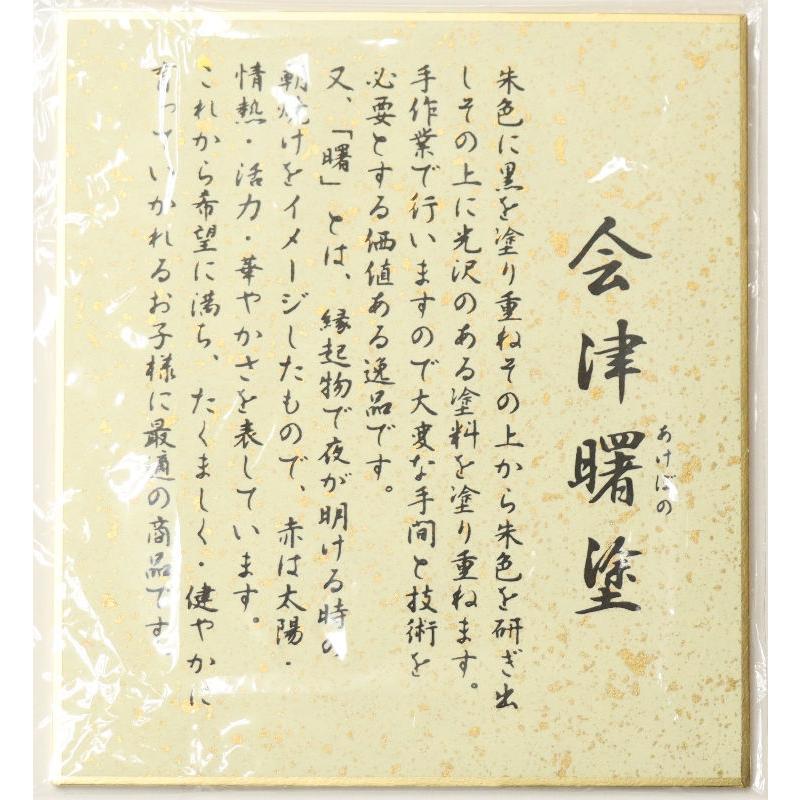 会津曙塗
あけぼの
朱色に黒を塗り重ねその上から朱色を研ぎ出
しその上に光沢のある塗料を塗り重ねます。
手作業で行いますので大変な手間と技術を
必要とする価値ある逸品です。
又、「曙」とは、縁起物で夜が明ける時の
朝焼けをイメージしたもので、赤は太陽・
情熱・活力・華やかさを表しています。
これから希望に満ち、たくましく・健やかに
育っていかれるお子様に最適の商品です。